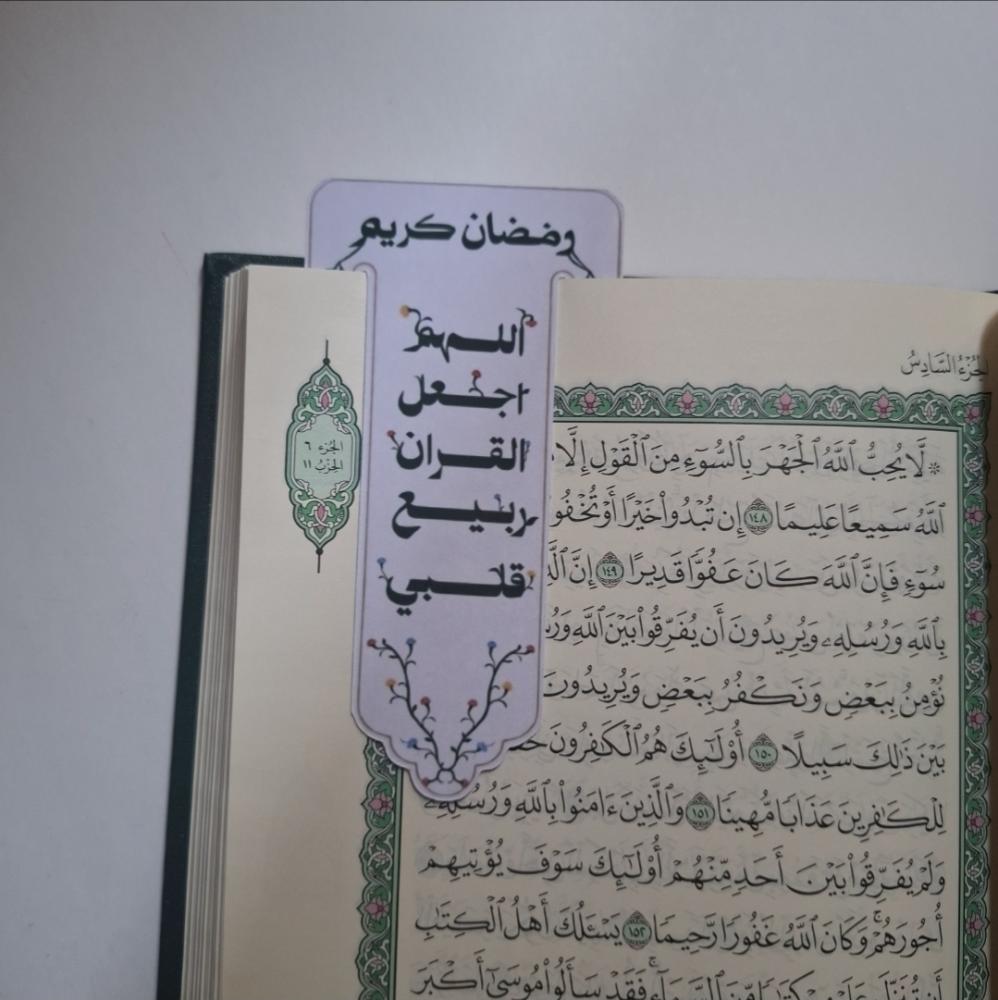 رمضان كريم
اللهم
اجعل
القران
ربيع
قلبي
الجزء ٦
الحزب ١١
الجُزْءُ السَّادِسُ
۞ لَّا يُحِبُّ ٱللَّهُ ٱلْجَهْرَ بِٱلسُّوٓءِ مِنَ ٱلْقَوْلِ إِلَّا
ٱللَّهُ سَمِيعًا عَلِيمًا ١٤٨ إِن تُبْدُوا۟ خَيْرًا أَوْ تُخْفُو
سُوٓءٍ فَإِنَّ ٱللَّهَ كَانَ عَفُوًّا قَدِيرًا ١٤٩ إِنَّ
بِٱللَّهِ وَرُسُلِهِۦ وَيُرِيدُونَ أَن يُفَرِّقُوا۟ بَيْنَ ٱللَّهِ
نُؤْمِنُ بِبَعْضٍ وَنَكْفُرُ بِبَعْضٍ وَيُرِيدُونَ
بَيْنَ ذَٰلِكَ سَبِيلًا ١٥٠ أُو۟لَٰٓئِكَ هُمُ ٱلْكَٰفِرُونَ
لِلْكَٰفِرِينَ عَذَابًا مُّهِينًا ١٥١ وَٱلَّذِينَ ءَامَنُوا۟ بِٱللَّهِ وَرُسُلِهِۦ
وَلَمْ يُفَرِّقُوا۟ بَيْنَ أَحَدٍ مِّنْهُمْ أُو۟لَٰٓئِكَ سَوْفَ يُؤْتِيهِمْ
أُجُورَهُمْ ۗ وَكَانَ ٱللَّهُ غَفُورًا رَّحِيمًا ١٥٢ يَسْـَٔلُكَ أَهْلُ ٱلْكِتَٰبِ
أَن تُنَزِّلَ عَلَيْهِمْ كِتَٰبًا مِّنَ ٱلسَّمَآءِ ۚ فَقَدْ سَأَلُوا۟ مُوسَىٰٓ أَكْبَرَ